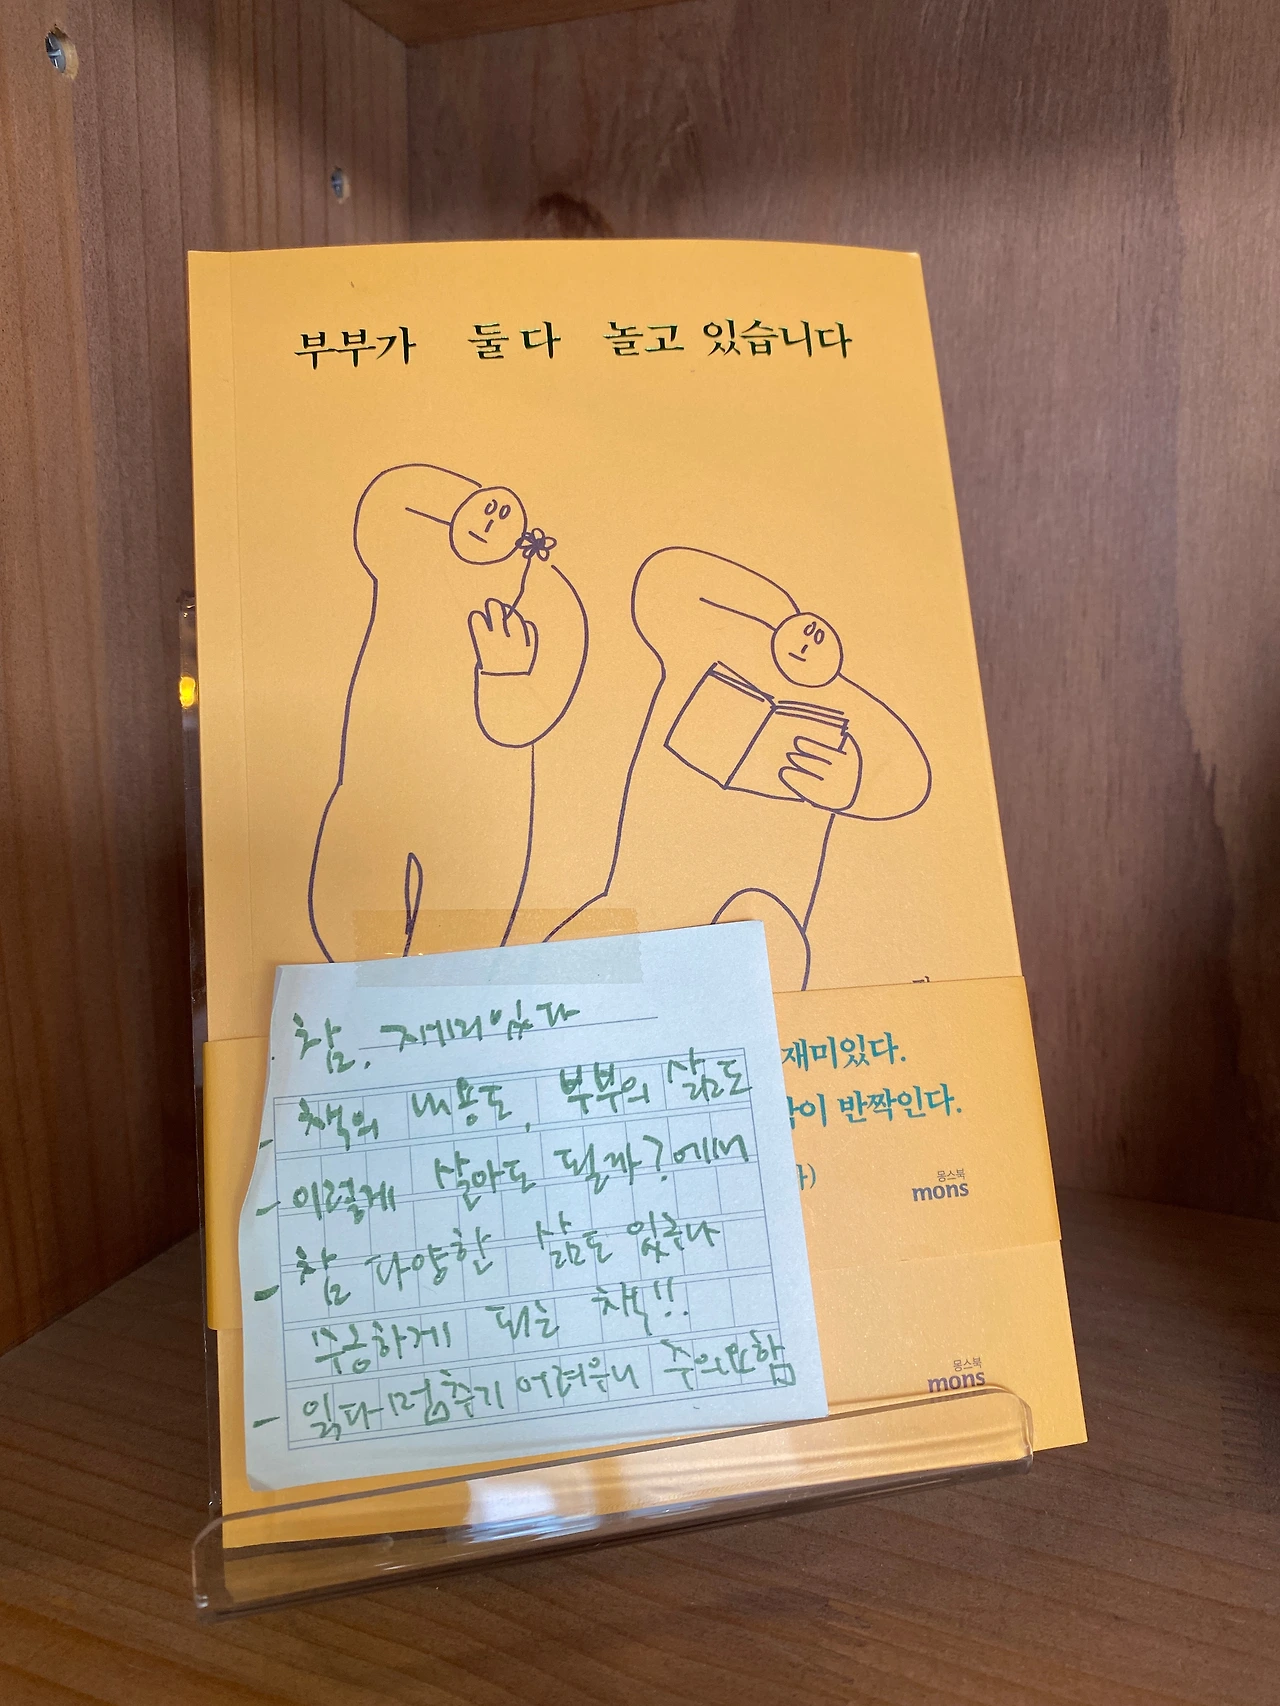 부부가 둘 다 놀고 있습니다
참, 재미있다
- 책의 내용도, 부부의 삶도
- 이렇게 살아도 될까?에서
- 참 다양한 삶도 있구나
수긍하게 되는 책!!
- 읽다-멈추기 어려우니 주의요함
재미있다.
이 반짝인다.
몽스북
mons
몽스북
mons